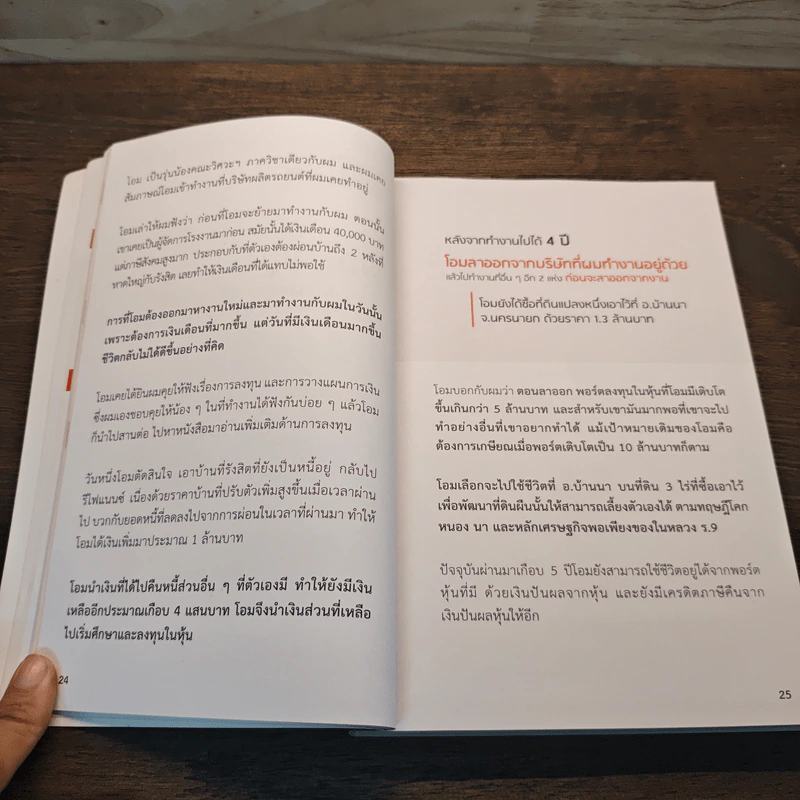 โอม เป็นรุ่นน้องคณะวิศวะฯ ภาควิชาเดียวกับผม และผมเคย
สัมภาษณ์โอมเข้าทำงานที่บริษัทผลิตรถยนต์ที่ผมเคยทำอยู่
โอมเล่าให้ผมฟังว่า ก่อนที่โอมจะย้ายมาทำงานกับผม ตอนนั้น
เขาเคยเป็นผู้จัดการโรงงานมาก่อน สมัยนั้นได้เงินเดือน 40,000 บาท
แต่ภาษีสังคมสูงมาก ประกอบกับที่ตัวเองต้องผ่อนบ้านถึง 2 หลังที่
หาดใหญ่กับรังสิต เลยทำให้เงินเดือนที่ได้แทบไม่พอใช้
การที่โอมต้องออกมาหางานใหม่และมาทำงานกับผมในวันนั้น
เพราะต้องการเงินเดือนที่มากขึ้น แต่วันที่มีเงินเดือนมากขึ้น
ชีวิตกลับไม่ได้ดีขึ้นอย่างที่คิด
โอมเคยได้ยินผมคุยให้ฟังเรื่องการลงทุน และการวางแผนการเงิน
ซึ่งผมเองชอบคุยให้น้อง ๆ ในที่ทำงานได้ฟังกันบ่อย ๆ แล้วโอม
ก็นำไปสานต่อ ไปหาหนังสือมาอ่านเพิ่มเติมด้านการลงทุน
วันหนึ่งโอมตัดสินใจ เอาบ้านที่รังสิตที่ยังเป็นหนี้อยู่ กลับไป
รีไฟแนนซ์ เนื่องด้วยราคาบ้านที่ปรับตัวเพิ่มสูงขึ้นเมื่อเวลาผ่าน
ไป บวกกับยอดหนี้ที่ลดลงไปจากการผ่อนในเวลาที่ผ่านมา ทำให้
โอมได้เงินเพิ่มมาประมาณ 1 ล้านบาท
โอมนำเงินที่ได้ไปคืนหนี้ส่วนอื่น ๆ ที่ตัวเองมี ทำให้ยังมีเงิน
เหลืออีกประมาณเกือบ 4 แสนบาท โอมจึงนำเงินส่วนที่เหลือ
ไปเริ่มศึกษาและลงทุนในหุ้น
24
หลังจากทำงานไปได้ 4 ปี
โอมลาออกจากบริษัทที่ผมทำงานอยู่ด้วย
แล้วไปทำงานที่อื่น ๆ อีก 2 แห่ง ก่อนจะลาออกจากงาน
โอมยังได้ซื้อที่ดินแปลงหนึ่งเอาไว้ที่ อ.บ้านนา
จ.นครนายก ด้วยราคา 1.3 ล้านบาท
โอมบอกกับผมว่า ตอนลาออก พอร์ตลงทุนในหุ้นที่โอมมีเติบโต
ขึ้นเกินกว่า 5 ล้านบาท และสำหรับเขามันมากพอที่เขาจะไป
ทำอย่างอื่นที่เขาอยากทำได้ แม้เป้าหมายเดิมของโอมคือ
ต้องการเกษียณเมื่อพอร์ตเติบโตเป็น 10 ล้านบาทก็ตาม
โอมเลือกจะไปใช้ชีวิตที่ อ.บ้านนา บนที่ดิน 3 ไร่ที่ซื้อเอาไว้
เพื่อพัฒนาที่ดินผืนนั้นให้สามารถเลี้ยงตัวเองได้ ตามทฤษฎีโคก
หนอง นา และหลักเศรษฐกิจพอเพียงของในหลวง ร.9
ปัจจุบันผ่านมาเกือบ 5 ปีโอมยังสามารถใช้ชีวิตอยู่ได้จากพอร์ต
หุ้นที่มี ด้วยเงินปันผลจากหุ้น และยังมีเครดิตภาษีคืนจาก
เงินปันผลหุ้นให้อีก
25